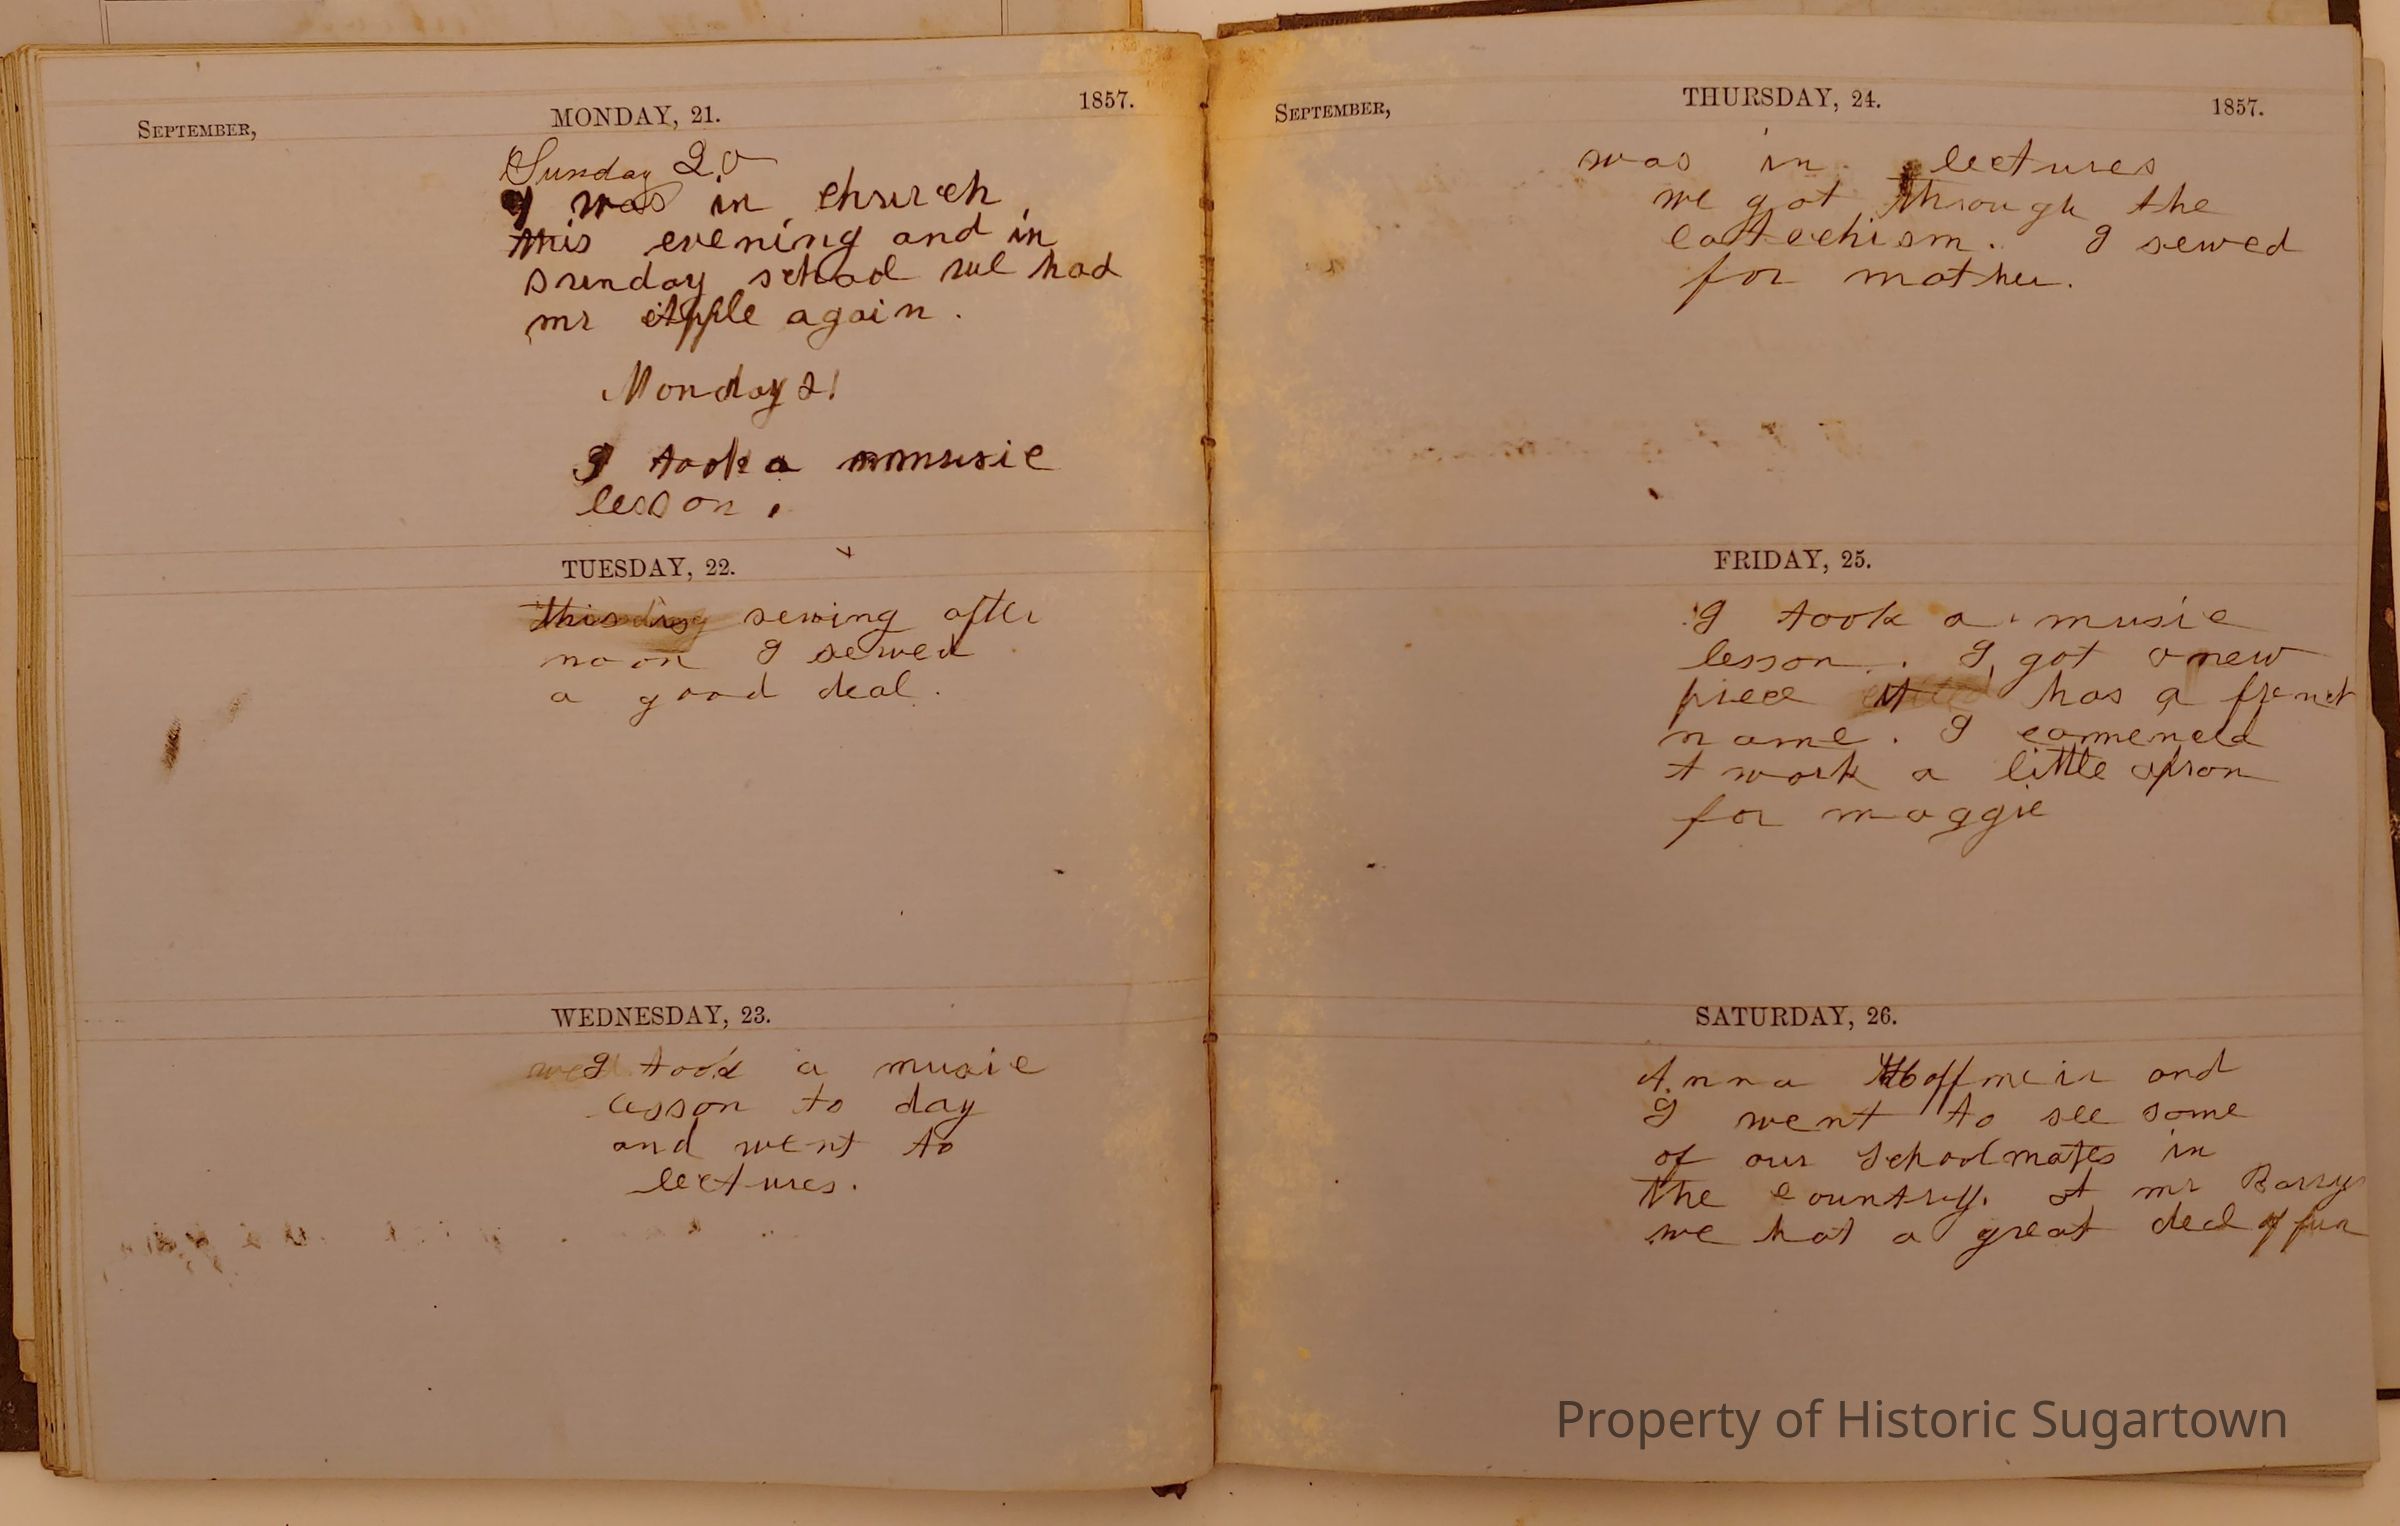 September,
MONDAY, 21.
1857.
Sunday 20
I was in church
this evening and in
sunday school we had
mr Apple again.
Monday 21
I took a music
lesson.
TUESDAY, 22.
this sewing after
noon I sewed
a good deal.
WEDNESDAY, 23.
I took a music
lesson to day
and went to
lectures.
September,
THURSDAY, 24.
1857.
was in lectures
we got through the
catechism. I sewed
for mother.
FRIDAY, 25.
I took a music
lesson. I got a new
piece it has a french
name. I comenced
t work a little apron
for maggie
SATURDAY, 26.
Anna Hoffmeir and
I went to see some
of our schoolmates in
the country. at mr Barrys
we hat a great deal of fun
Property of Historic Sugartown